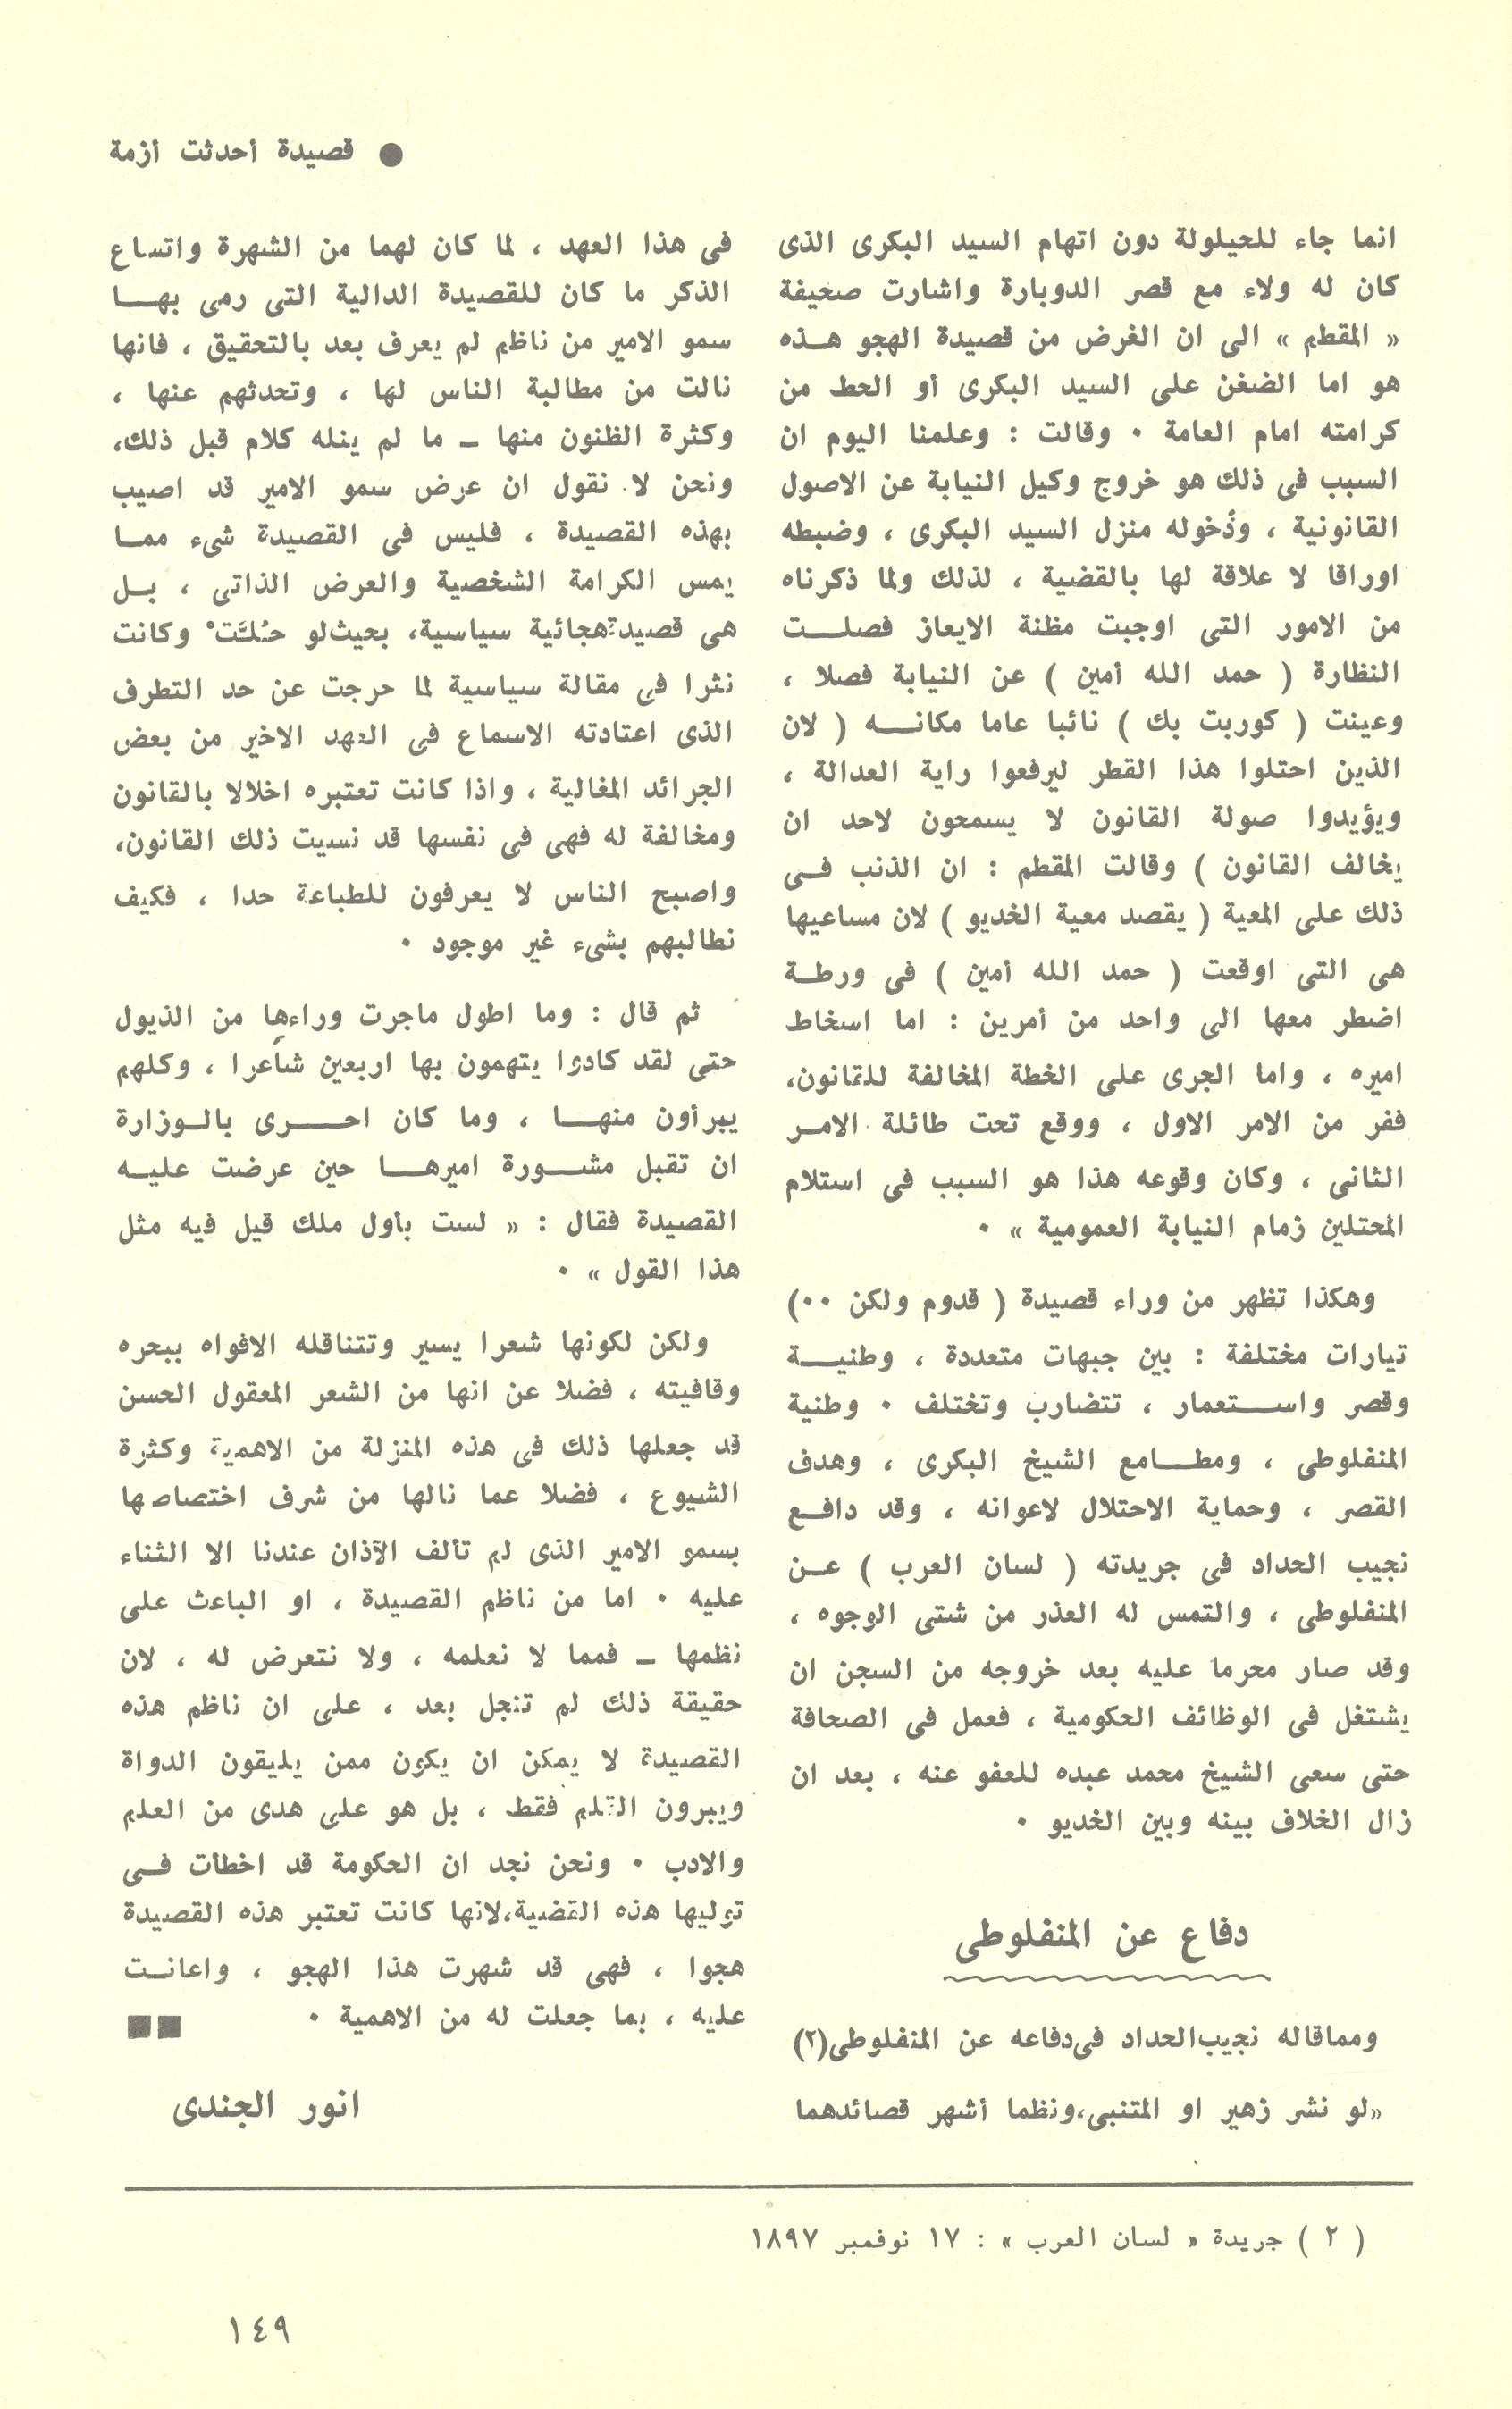 ● قصيدة أحدثت أزمة
انما جاء للحيلولة دون اتهام السيد البكرى الذى
كان له ولاء مع قصر الدوبارة واشارت صحيفة
« المقطم » الى ان الغرض من قصيدة الهجو هــذه
هو اما الضغن على السيد البكرى أو الحط من
كرامته امام العامة ٠ وقالت : وعلمنا اليوم ان
السبب فى ذلك هو خروج وكيل النيابة عن الاصول
القانونية ، ودُخوله منزل السيد البكرى ، وضبطه
اوراقا لا علاقة لها بالقضية ، لذلك ولما ذكرناه
من الامور التى اوجبت مظنة الايعاز فصلـــت
النظارة ( حمد الله أمين ) عن النيابة فصلا ،
وعينت ( كوربت بك ) نائبا عاما مكانـــه ( لان
الذين احتلوا هذا القطر ليرفعوا راية العدالة ،
ويؤيدوا صولة القانون لا يسمحون لاحد ان
يخالف القانون ) وقالت المقطم : ان الذنب فــى
ذلك على المعية ( يقصد معية الخديو ) لان مساعيها
هى التى اوقعت ( حمد الله أمين ) فى ورطــة
اضطر معها الى واحد من أمرين : اما اسخاط
اميره ، واما الجرى على الخطة المخالفة للقانون،
ففر من الامر الاول ، ووقع تحت طائلة الامــر
الثانى ، وكان وقوعه هذا هو السبب فى استلام
المحتلين زمام النيابة العمومية » ٠
وهكذا تظهر من وراء قصيدة ( قدوم ولكن ٠٠)
تيارات مختلفة : بين جبهات متعددة ، وطنيــــة
وقصر واســـتعمار ، تتضارب وتختلف ٠ وطنية
المنفلوطى ، ومطـــامع الشيخ البكرى ، وهدف
القصر ، وحماية الاحتلال لاعوانه ، وقد دافــع
نجيب الحداد فى جريدته ( لسان العرب ) عــن
المنفلوطى ، والتمس له العذر من شتى الوجوه ،
وقد صار محرما عليه بعد خروجه من السجن ان
يشتغل فى الوظائف الحكومية ، فعمل فى الصحافة
حتى سعى الشيخ محمد عبده للعفو عنه ، بعد ان
زال الخلاف بينه وبين الخديو ٠
دفاع عن المنفلوطى
ومماقاله نجيب‌الحداد فى‌دفاعه عن المنفلوطى(٢)
«لو نشر زهير او المتنبى،ونظما أشهر قصائدهما
فى هذا العهد ، لما كان لهما من الشهرة واتساع
الذكر ما كان للقصيدة الدالية التى رمى بهـــا
سمو الامير من ناظم لم يعرف بعد بالتحقيق ، فانها
نالت من مطالبة الناس لها ، وتحدثهم عنها ،
وكثرة الظنون منها ـ ما لم ينله كلام قبل ذلك،
ونحن لا نقول ان عرض سمو الامير قد اصيب
بهذه القصيدة ، فليس فى القصيدة شىء ممــا
يمس الكرامة الشخصية والعرض الذاتى ، بــل
هى قصيدة‌هجائية سياسية، بحيث‌لو حُلَّتْ وكانت
نثرا فى مقالة سياسية لما خرجت عن حد التطرف
الذى اعتادته الاسماع فى العهد الاخير من بعض
الجرائد المغالية ، واذا كانت تعتبره اخلالا بالقانون
ومخالفة له فهى فى نفسها قد نسيت ذلك القانون،
واصبح الناس لا يعرفون للطباعة حدا ، فكيف
نطالبهم بشىء غير موجود ٠
ثم قال : وما اطول ماجرت وراءها من الذيول
حتى لقد كادوا يتهمون بها اربعين شاعرا ، وكلهم
يبرأون منهـــا ، وما كان احـــــرى بالــوزارة
ان تقبل مشـــورة اميرهـــا حين عرضت عليــه
القصيدة فقال : « لست بأول ملك قيل فيه مثل
هذا القول » ٠
ولكن لكونها شعرا يسير وتتناقله الافواه ببحره
وقافيته ، فضلا عن انها من الشعر المعقول الحسن
قد جعلها ذلك فى هذه المنزلة من الاهمية وكثرة
الشيوع ، فضلا عما نالها من شرف اختصاصها
بسمو الامير الذى لم تألف الآذان عندنا الا الثناء
عليه ٠ اما من ناظم القصيدة ، او الباعث على
نظمها ـ فمما لا نعلمه ، ولا نتعرض له ، لان
حقيقة ذلك لم تنجل بعد ، على ان ناظم هذه
القصيدة لا يمكن ان يكون ممن يليقون الدواة
ويبرون القلم فقط ، بل هو على هدى من العلم
والادب ٠ ونحن نجد ان الحكومة قد اخطأت فــى
توليها هذه القضية،لانها كانت تعتبر هذه القصيدة
هجوا ، فهى قد شهرت هذا الهجو ، واعانــت
عليه ، بما جعلت له من الاهمية ٠ ■■
انور الجندى
( ٢ ) جريدة « لسان العرب » : ١٧ نوفمبر ١٨٩٧
١٤٩